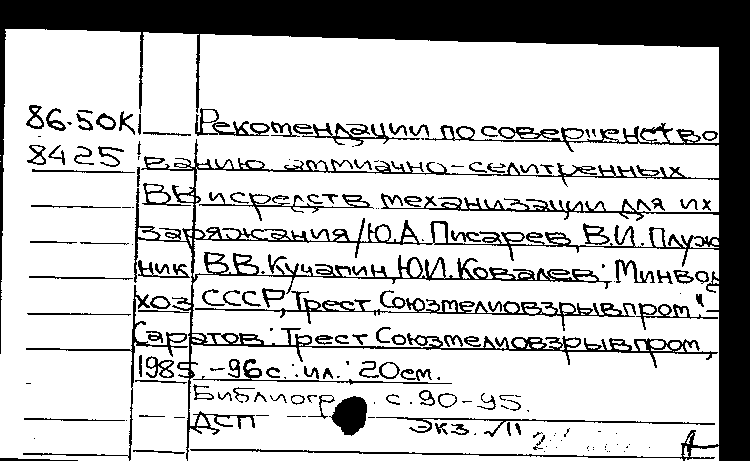 86-50К Рекомендации по совершенство
8425 ванию аммиачно-селитренных
ВВ и средств механизации для их
заряжания/Ю.А. Писарев, В.И. Плуж
ник, В.В. Кучагин, Ю.И. Ковалев; Минвод
хоз СССР, Трест "Союзмелиовзрывпром".-
Саратов: Трест Союзмелиовзрывпром,
1985.-96с.: ил.; 20см.
Библиогр с.90-95.
ДСП Экз. √11